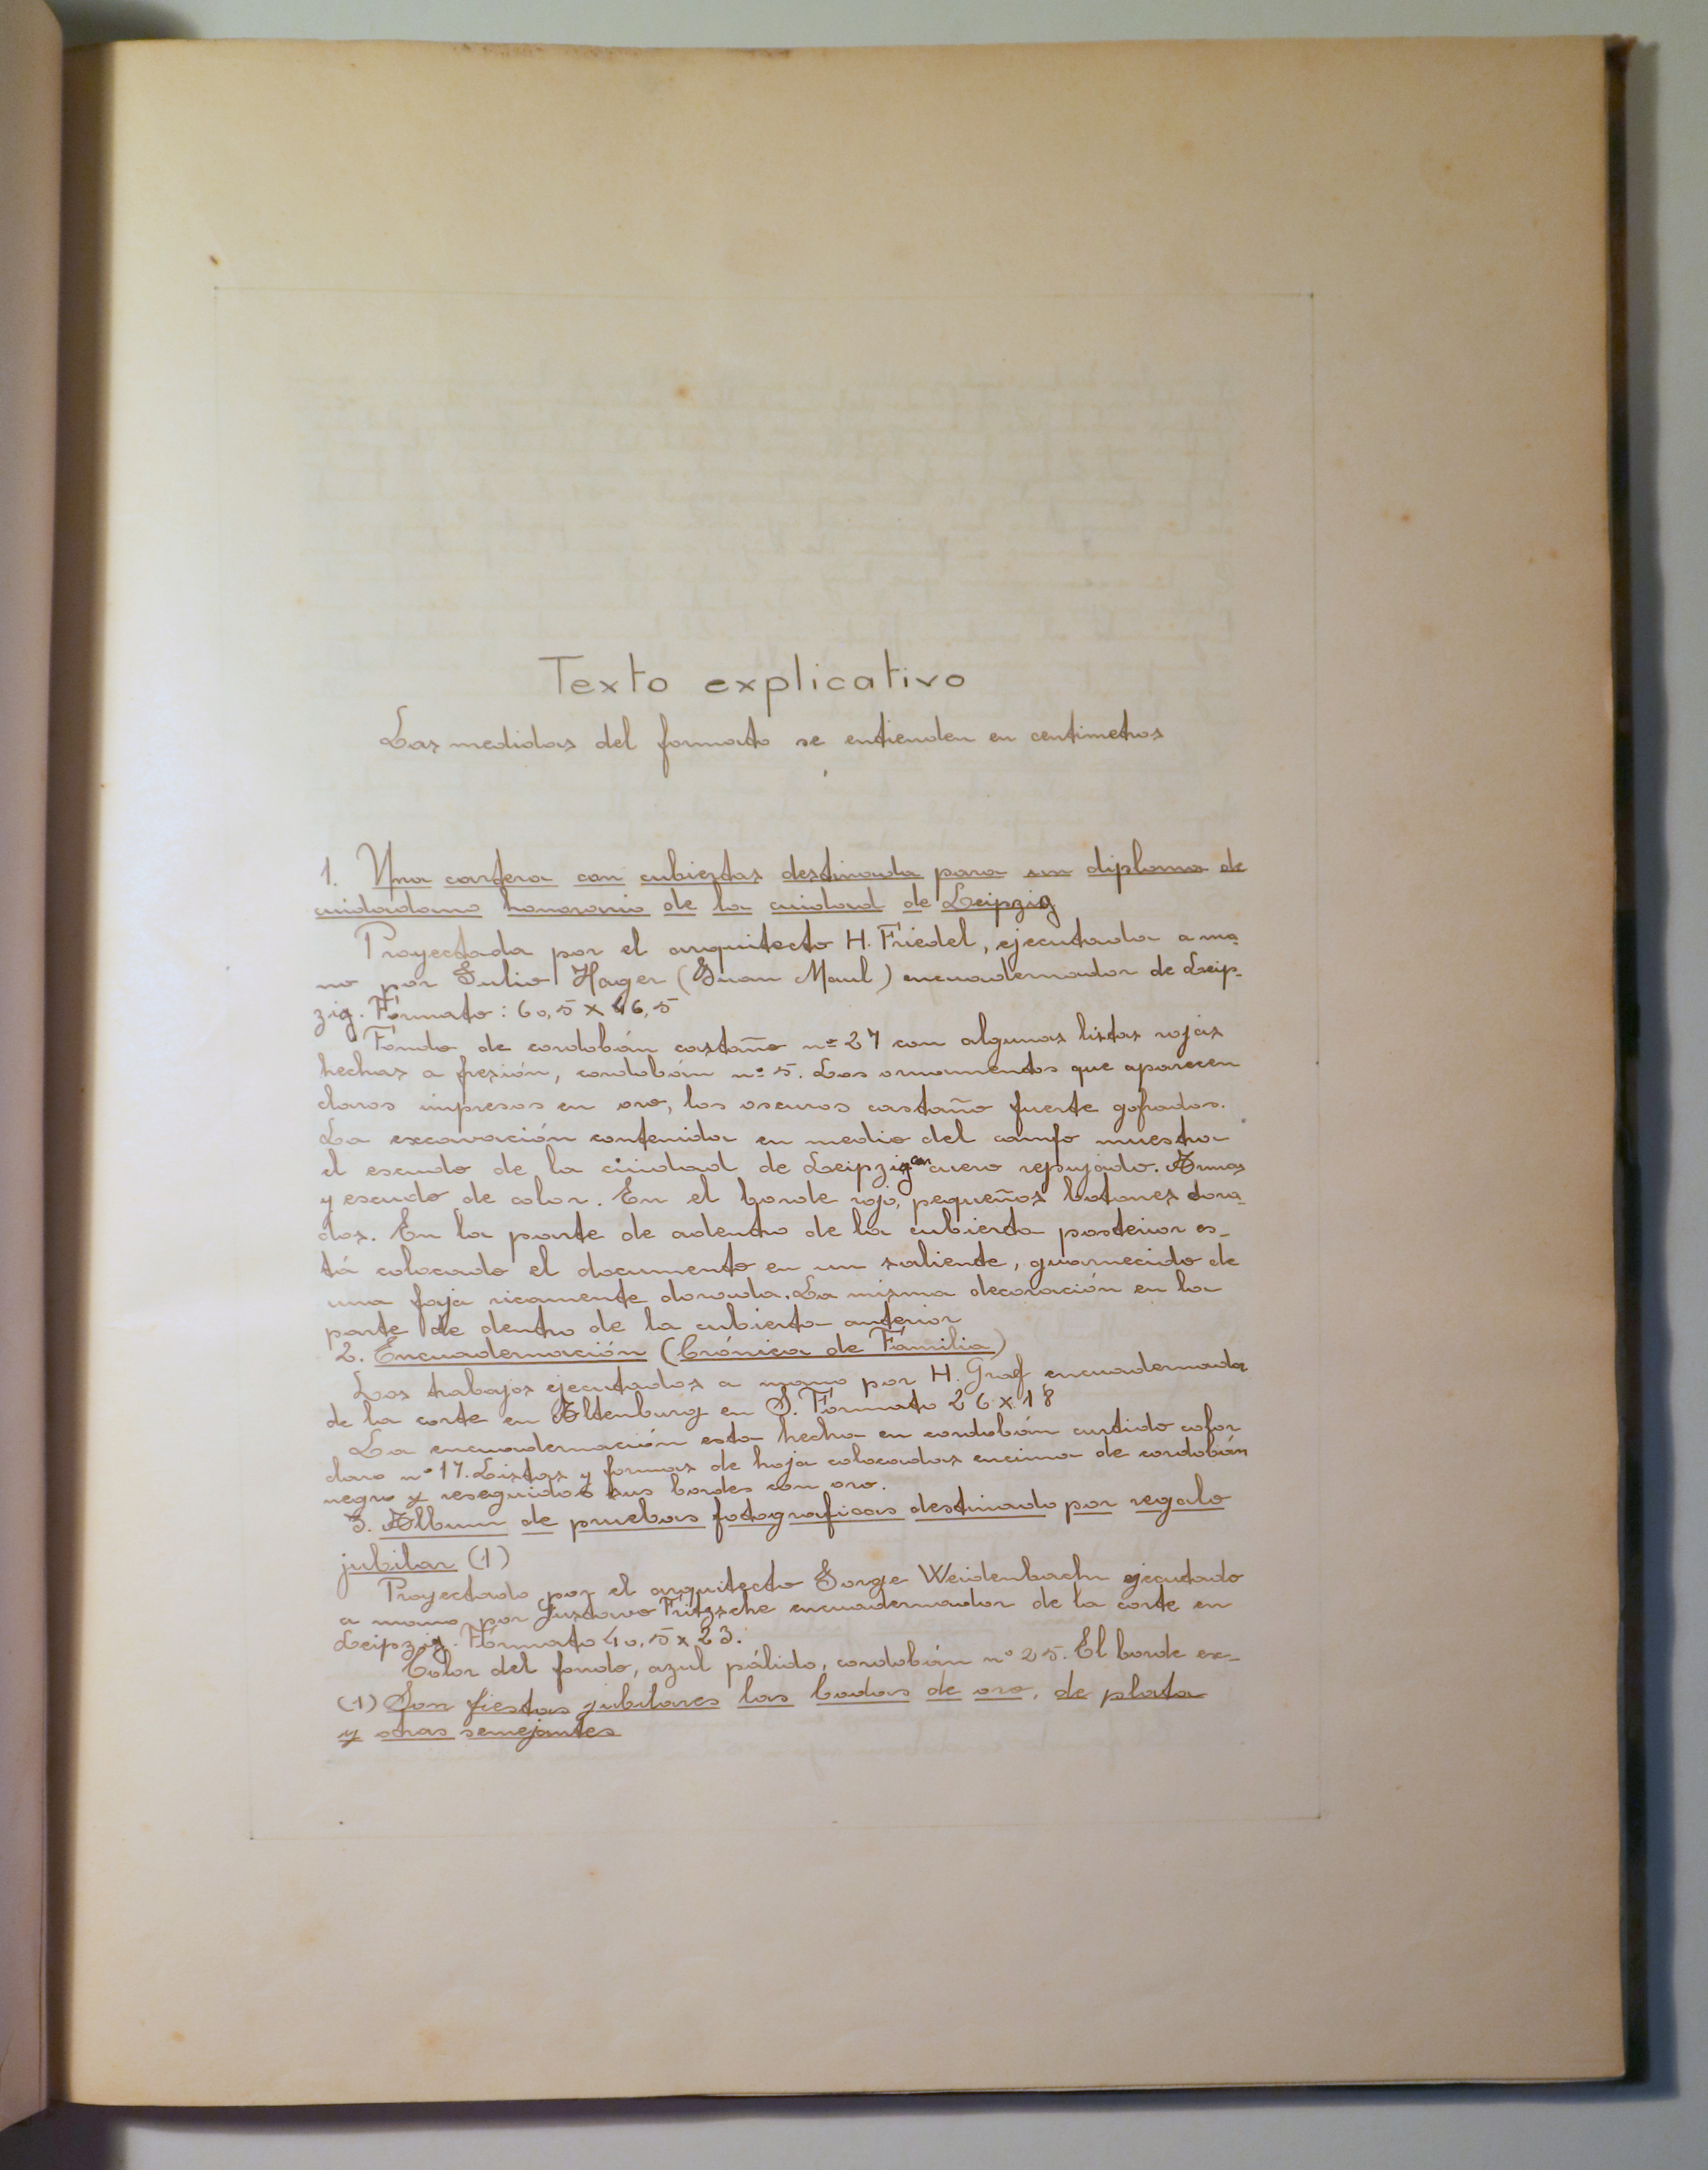 Texto explicativo
Las medidas del formato se entienden en centimetros
1. Una cartera con cubiertas destinada para un diploma de
cuidadano honorario de la cuidad de Leipzig
Proyectada por el arquitecto H. Friedel, ejecutada a ma-
no por Julio Hager (Juan Maul) encuadernador de Leip-
zig. Formato: 60,5 x 46,5
Fondo de cordobán castaño nº 27 con algunas listas rojas
hechas a presión, cordobán nº 5. Los ornamentos que aparecen
claros impresos en oro, los oscuros castaño fuerte gofrados.
La excavación contenida en medio del campo muestra
el escudo de la ciudad de Leipzig con cuero repujado. Armas
y escudo de color. En el borde rojo, pequeños botones dora-
dos. En la parte de adentro de la cubierta posterior es-
tá colocado el documento en un saliente, guarnecido de
una faja ricamente dorada. La misma decoración en la
parte de dentro de la cubierta anterior
2. Encuadernación (Crónica de Familia)
Los trabajos ejecutados a mano por H. Graf encuadernador
de la corte en Altenburg en S. Formato 26 x 18
La encuadernación esta hecha en cordobán curtido color
claro nº 17. Listas y formas de hoja colocadas encima de cordobán
negro y reseguidos sus bordes con oro.
3. Album de pruebas fotograficas destinado por regalo
jubilar (1)
Proyectado por el arquitecto Jorge Weidenbach ejecutado
a mano por Gustavo Fritzsche encuadernador de la corte en
Leipzig. Formato 40,5 x 23.
Color del fondo, azul pálido, cordobán nº 25. El borde ex-
(1) Son fiestas jubilares las bodas de oro, de plata
y otras semejantes